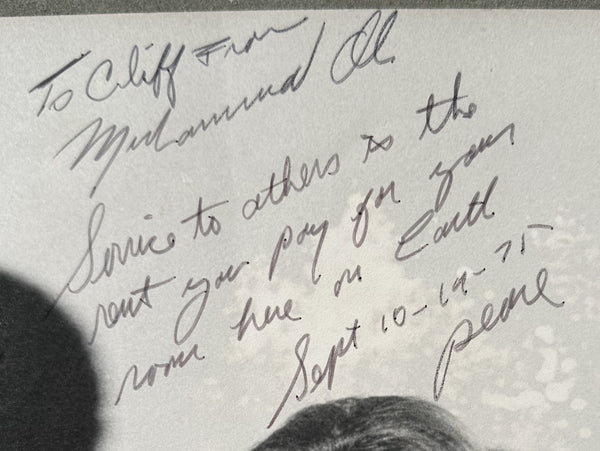 To Cliff From
Muhammad Ali
Service to others is the
rent you pay for your
room here on Earth
Sept 10-19-75
peace